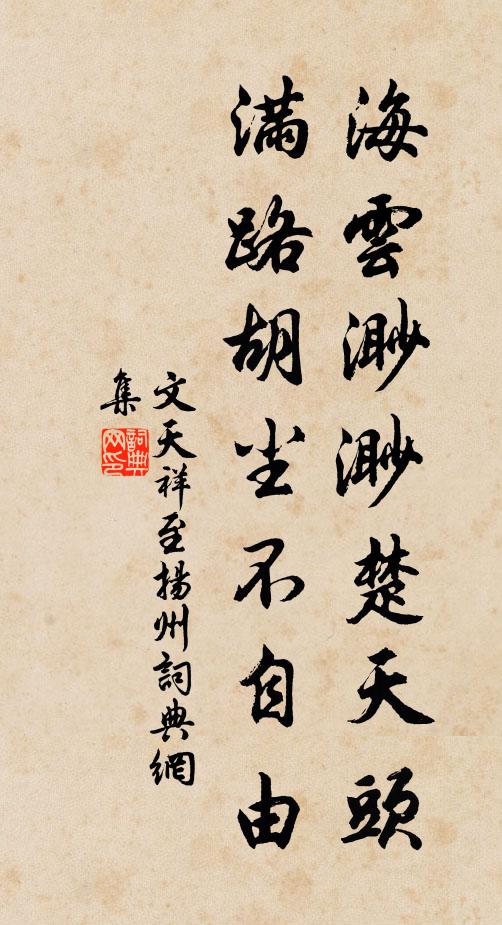 海雲渺渺楚天頭
滿路胡尘不自由
文天祥至揚州詞典網
集
詞典网印